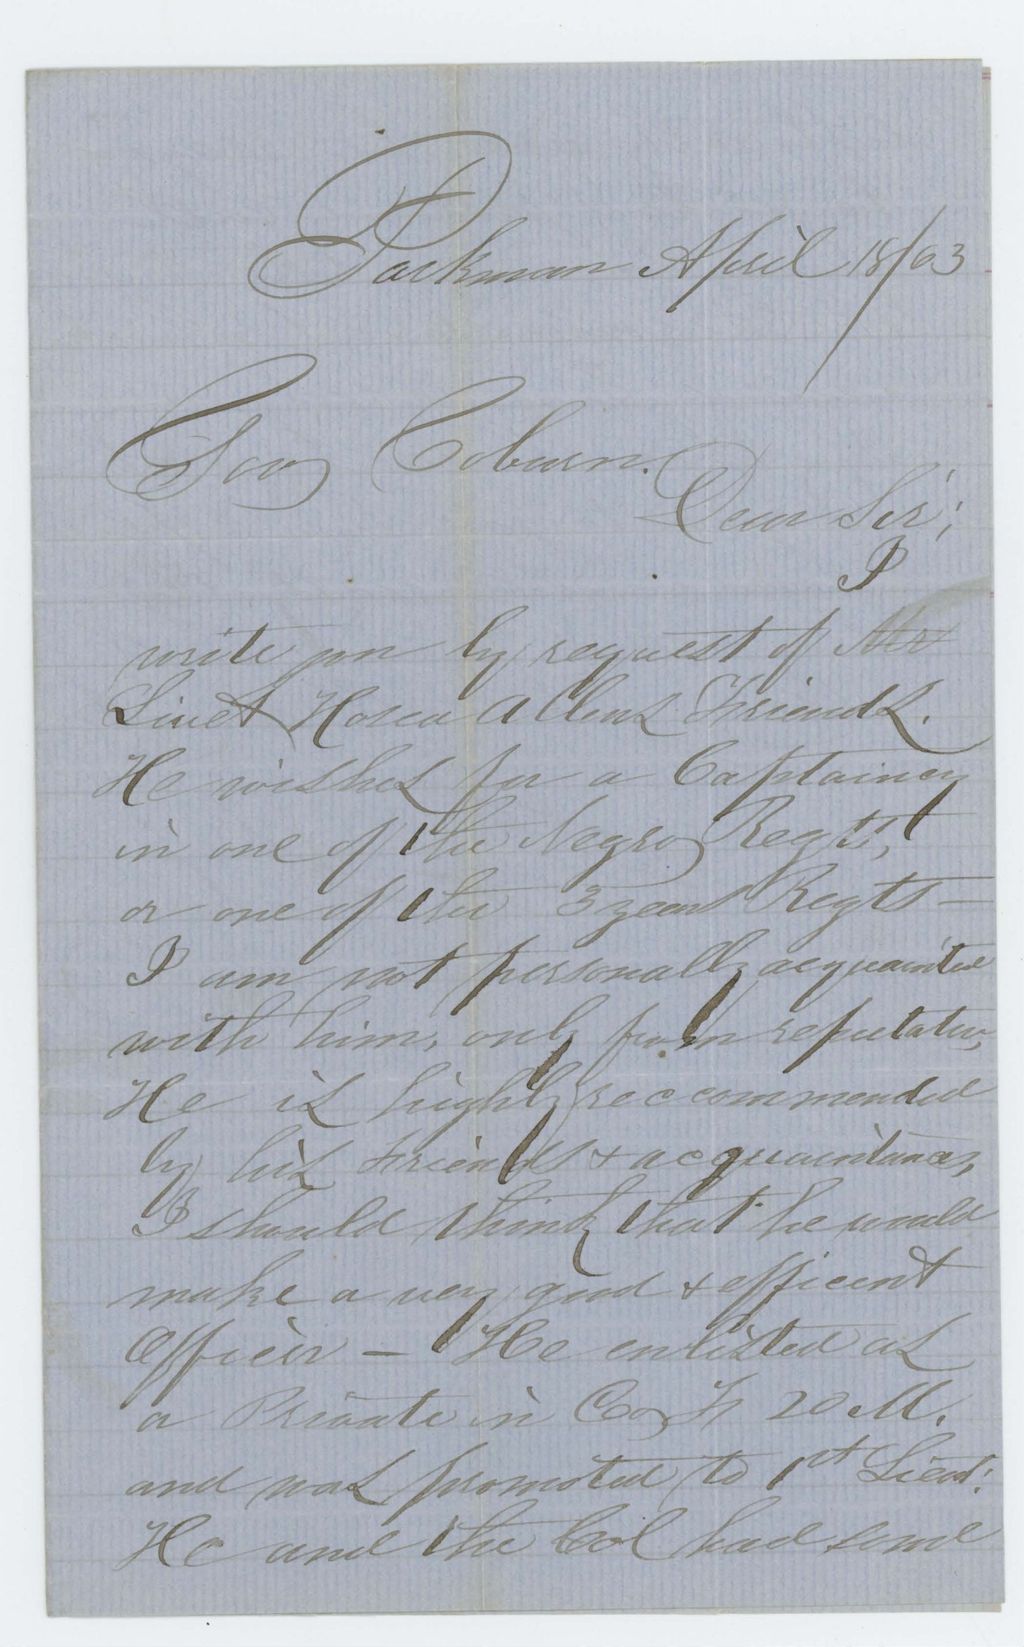 Parkman April 18/63
Gov Coburn.
Dear Sir;
I
write you by request of Mr
Liuet Hosea Allens Friends.
He wishes for a Captaincy
in one of the Negro Regts,
or one of the 3 years Regts —
I am not personally acquainted
with him, only from reputation,
He is highly reccommended
by his Friends & acquaintances,
I should think that he would
make a very good & efficent
Officer — He enlisted as
a Private in Co 20 M.
and was promoted to 1st Lieut.
He and the Col had some